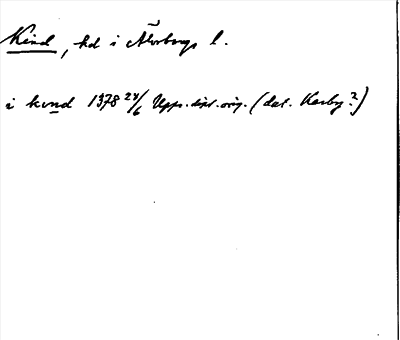 Kind, hd i Älvsborgs l.
i kind 1378 28/6 Upps. dipl. orig. (dat. Karby?)